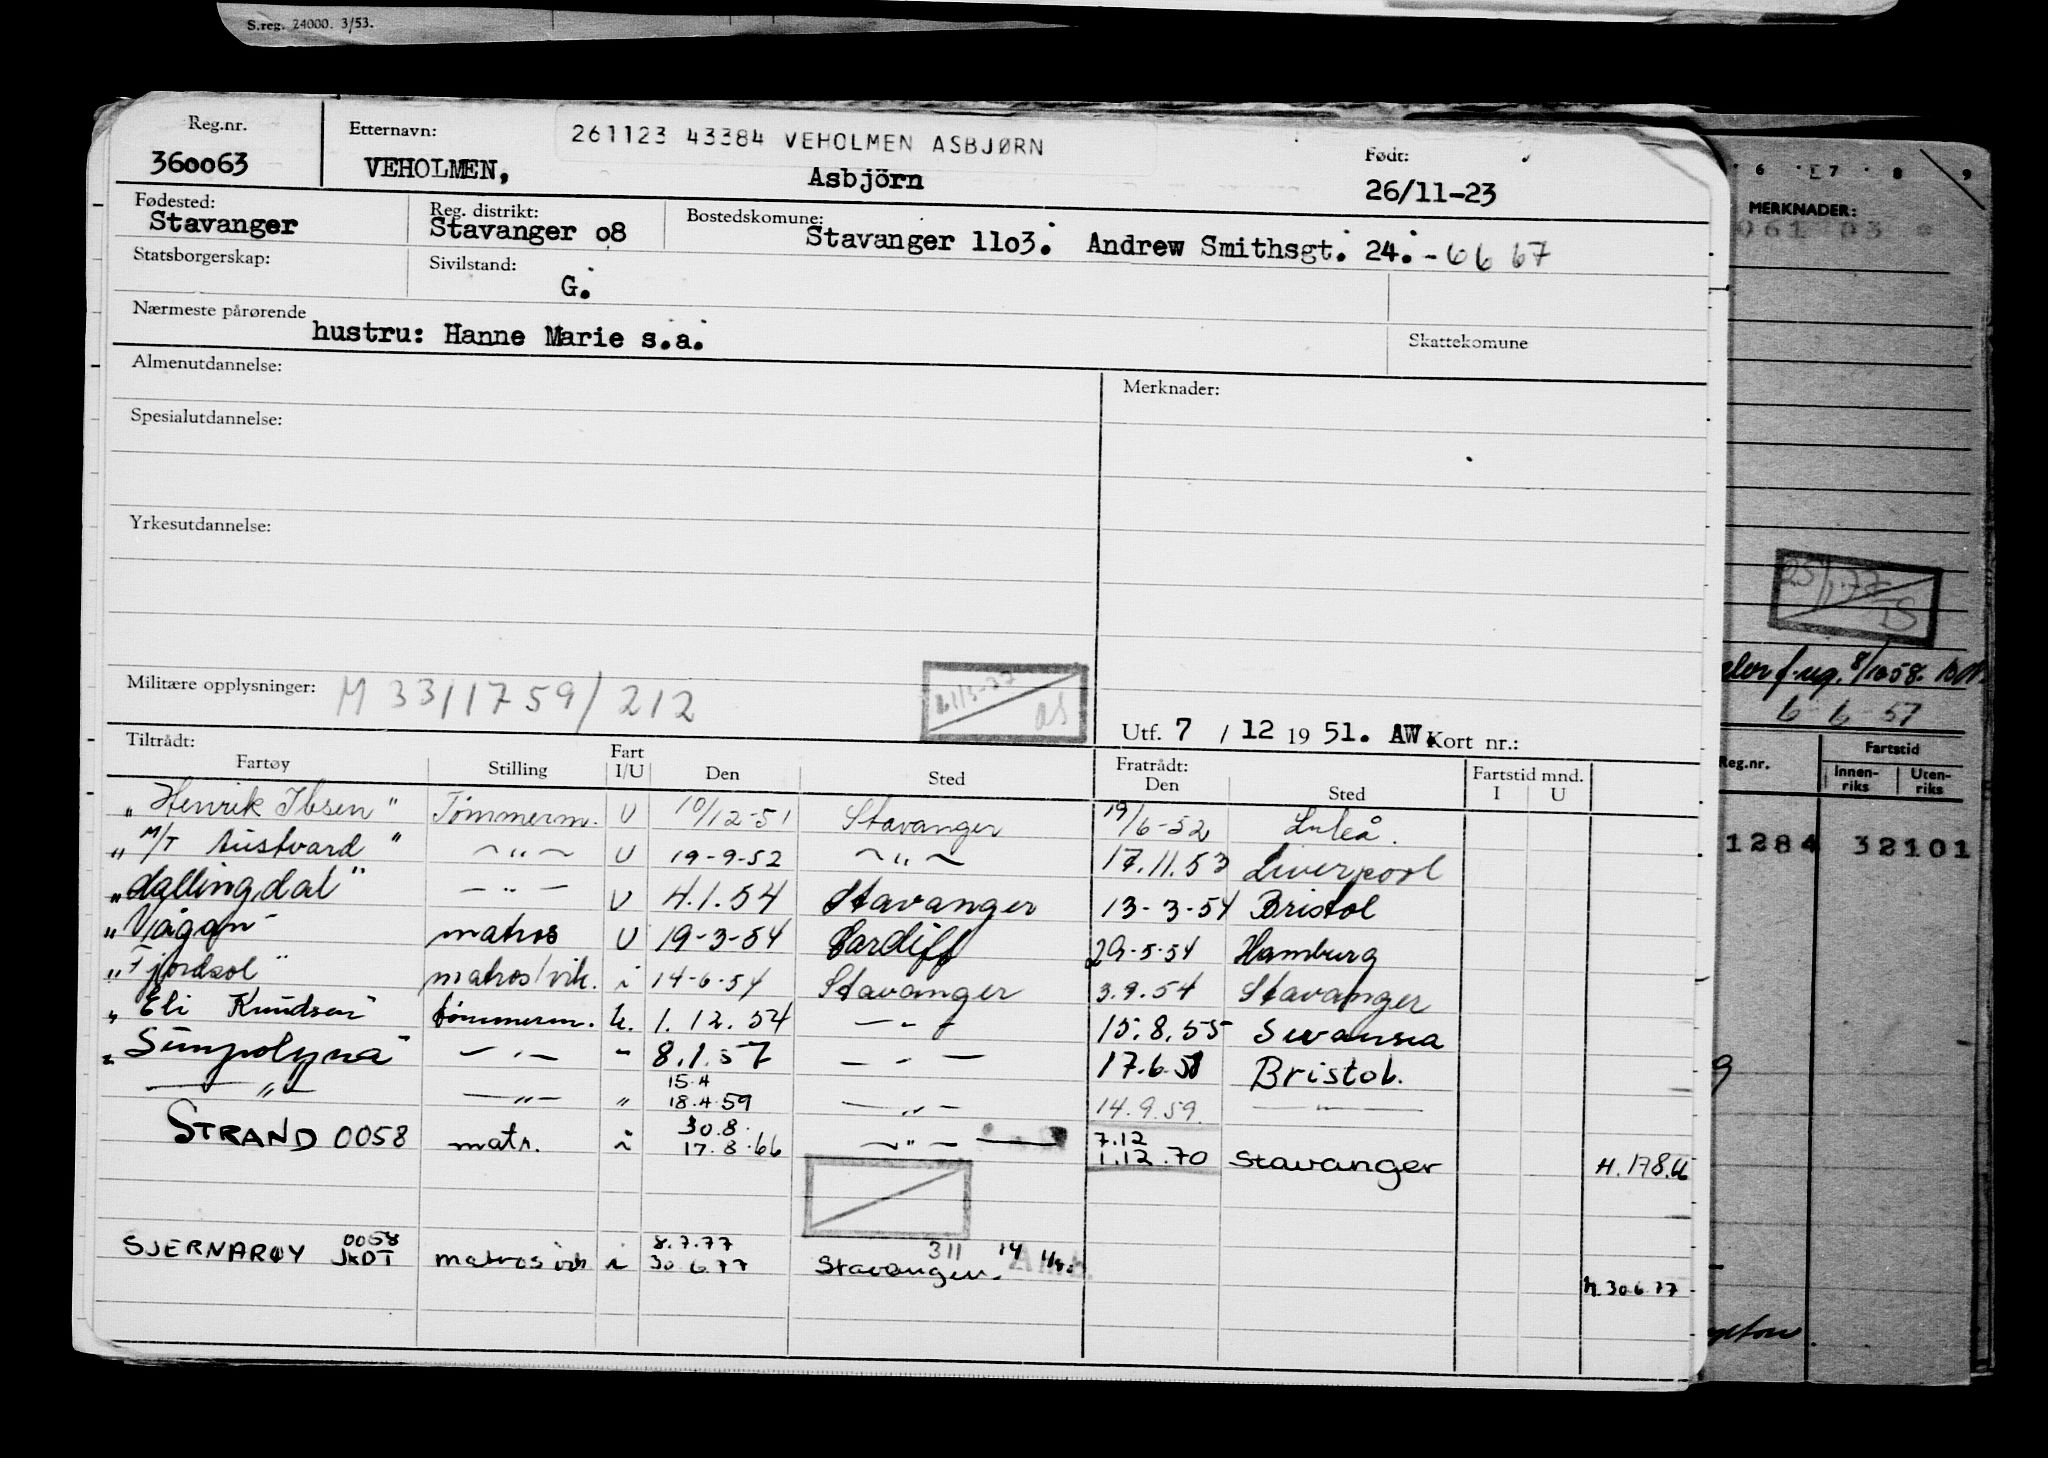 S.reg. 24000. 3/53.
Reg.nr. 360063
Etternavn: 261123 43384 VEHOLMEN ASBJØRN
VEHOLMEN, Asbjörn
Født: 26/11-23
Fødested: Stavanger
Reg. distrikt: Stavanger o8
Bostedskomune: Stavanger 11o3. Andrew Smithsgt. 24.- 6667
Statsborgerskap:
Sivilstand: G.
Nærmeste pårørende hustru: Hanne Marie s.a.
Skattekomune
Almenutdannelse:
Merknader:
Spesialutdannelse:
Yrkesutdannelse:
Militære opplysninger: M 33/1759/212
Utf. 7 / 12 19 51. AW. Kort nr.:
Tiltrådt: Fartøy Stilling Fart I/U Den Sted Fratrådt: Den Sted Fartstid mnd. I U
"Henrik Ibsen" Tømmerm. U 10/12-51 Stavanger 19/6-52 Luleå.
"M/T Austvard" — " — U 19-9-52 — " — 17.11.53 Liverpool
"Hallingdal" — " — U 4.1.54 Stavanger 13-3-54 Bristol
"Vågan" matros U 19-3-54 Cardiff 29-5-54 Hamburg
"Fjordsol" matros/vik. i 14-6-54 Stavanger 3.9.54 Stavanger
"Eli Knudsen" tømmerm. U. 1.12.54 — " — 15.8.55 Swansea
"Sunpolyna" — " — " 8.1.57 — " — 17.6.58 Bristol.
— " — — " — " 15.4 18.4.59 — " — 14.9.59. — " —
STRAND 0058 matr. i 30.8. 17.8.66 — " — 7.12 1.12.70 Stavanger H.178.66
SJERNARØY 0058 JKDT matros vik i 8.7.77 30.6.77 Stavanger. 311 14
H.30.6.77
6 7 8 9
MERKNADER:
061 03
25/1.77
IS
6-6-57
Reg.nr.
Fartstid
Innenriks Utenriks
1284 32101